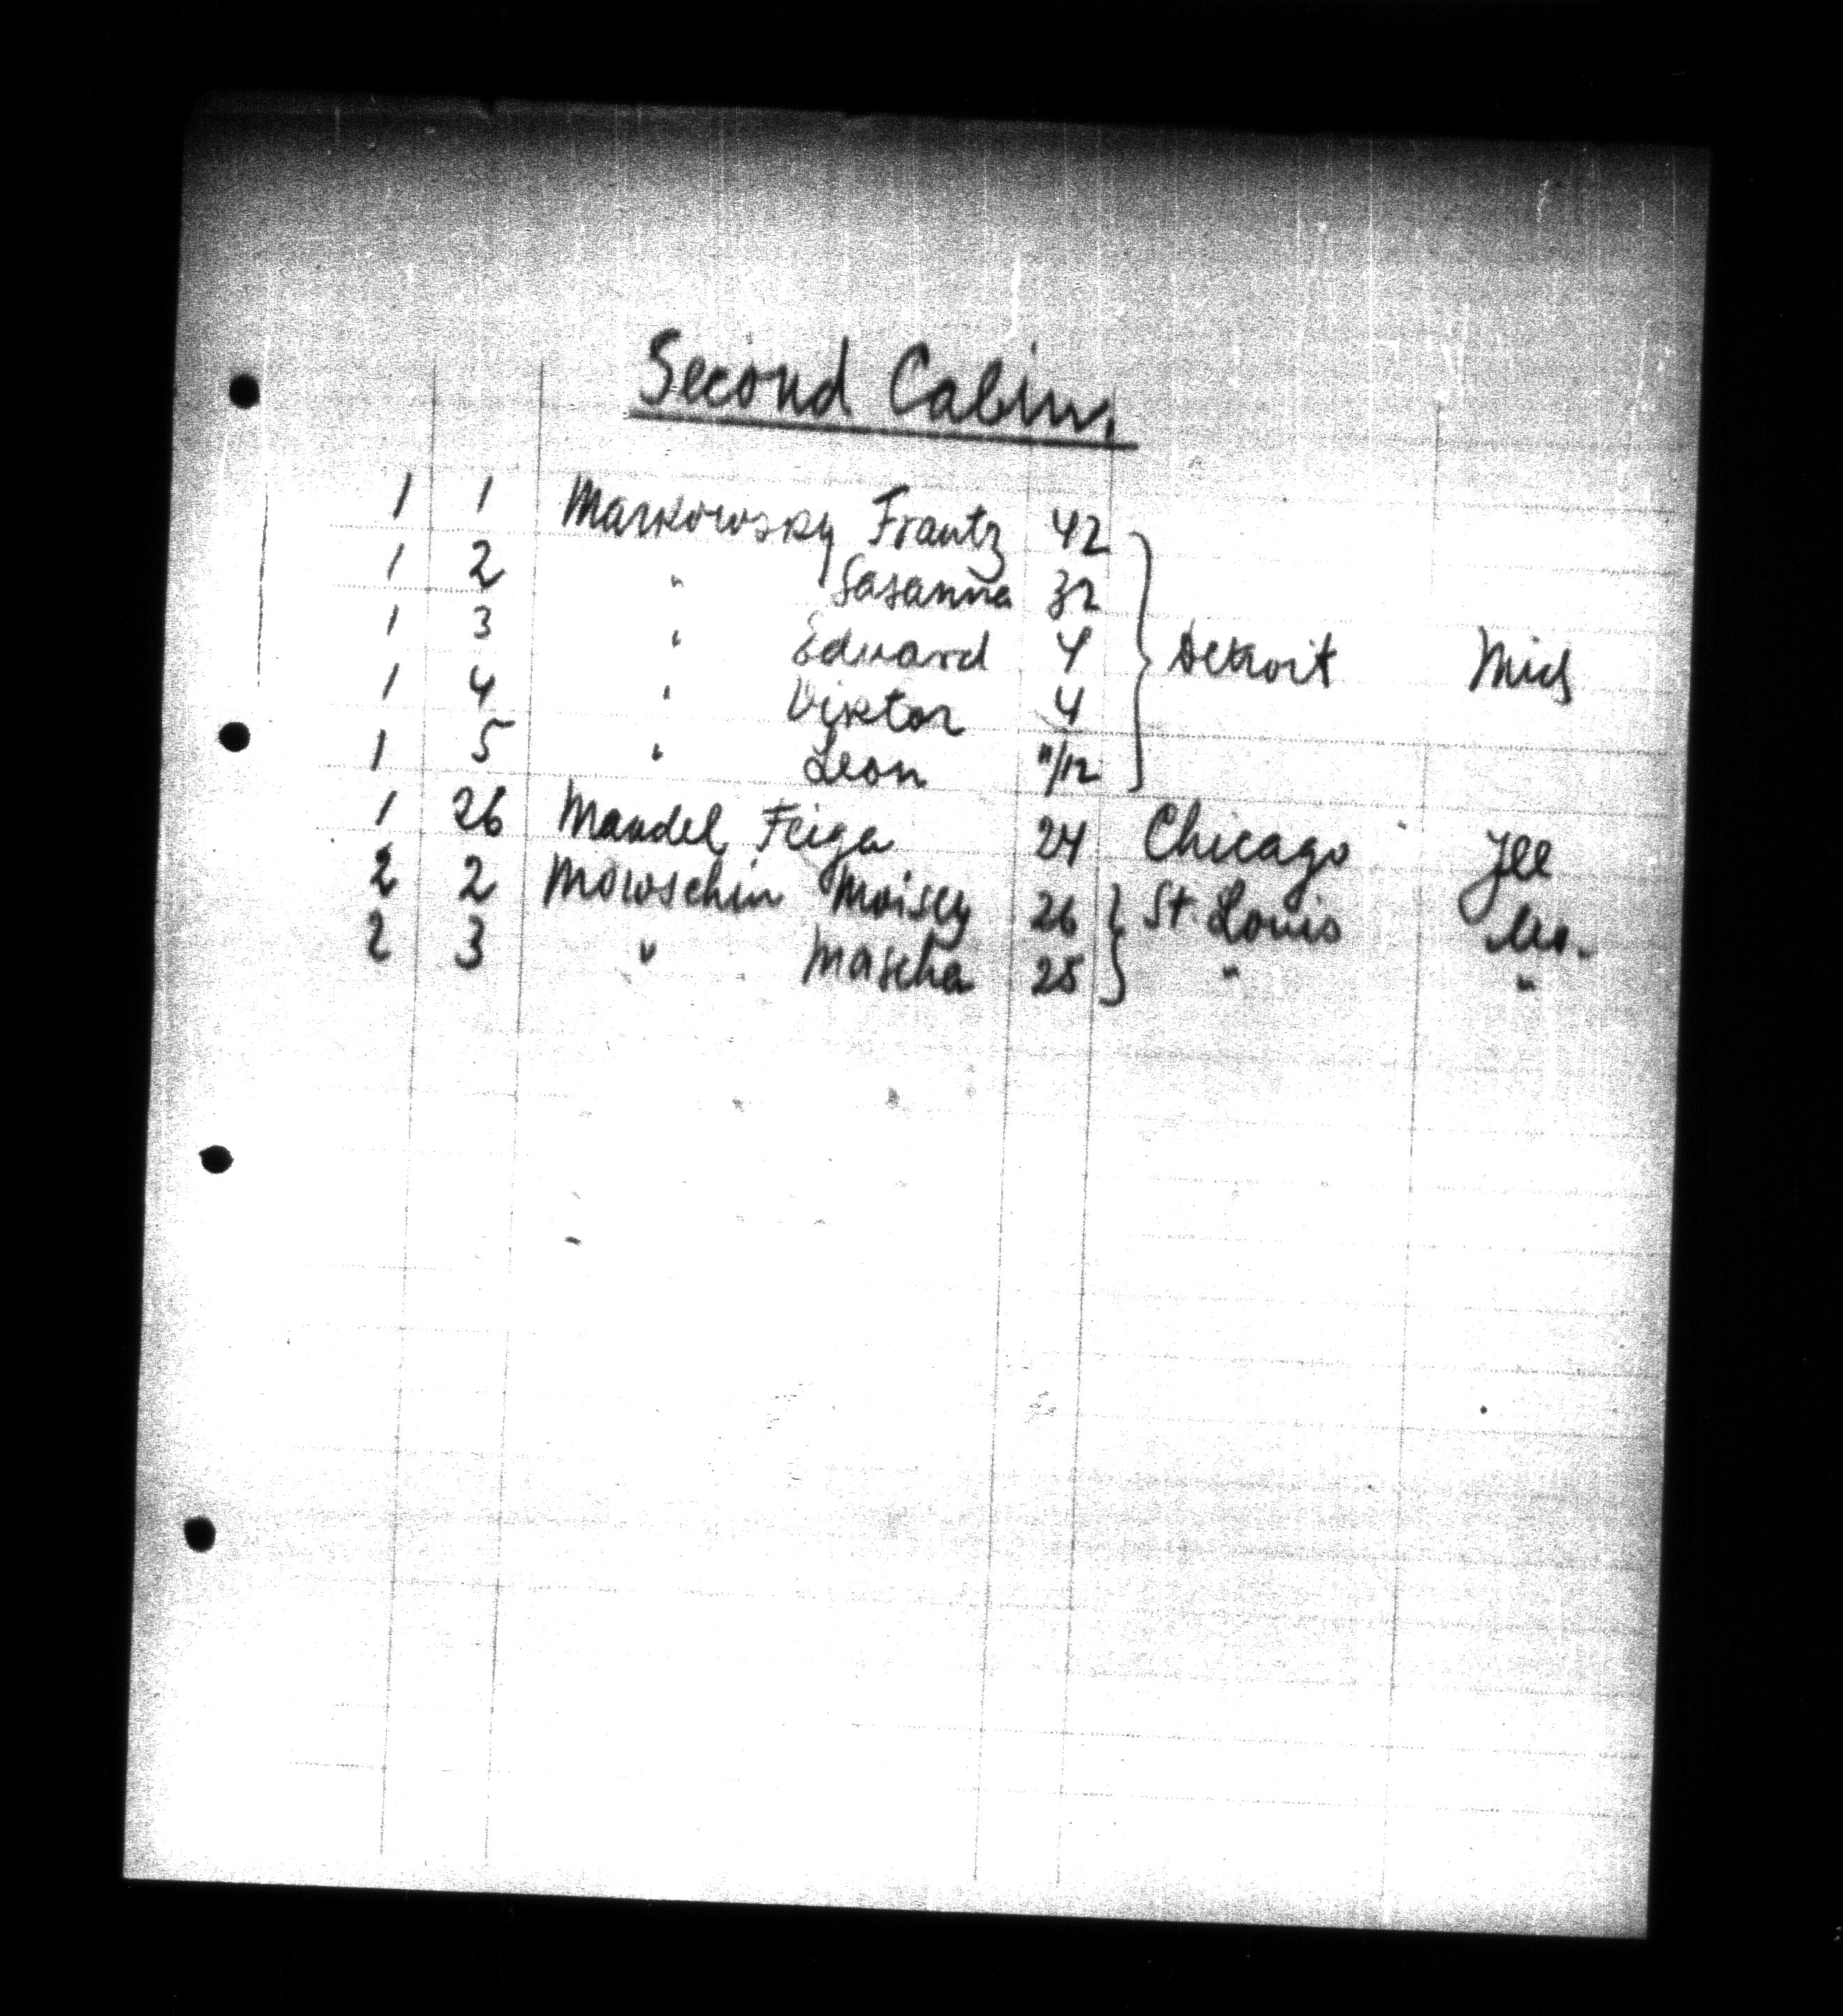 Second Cabin.
1 1 Markowsky Frantz 42
1 2 " Sasanna 32
1 3 " Eduard 4 Detroit Mich
1 4 " Viktor 4
1 5 " Leon 11/12
1 26 Mandel Feiga 24 Chicago Ill
2 2 Mowschin Moisey 26 St. Louis Mo.
2 3 " Mascha 25 " "